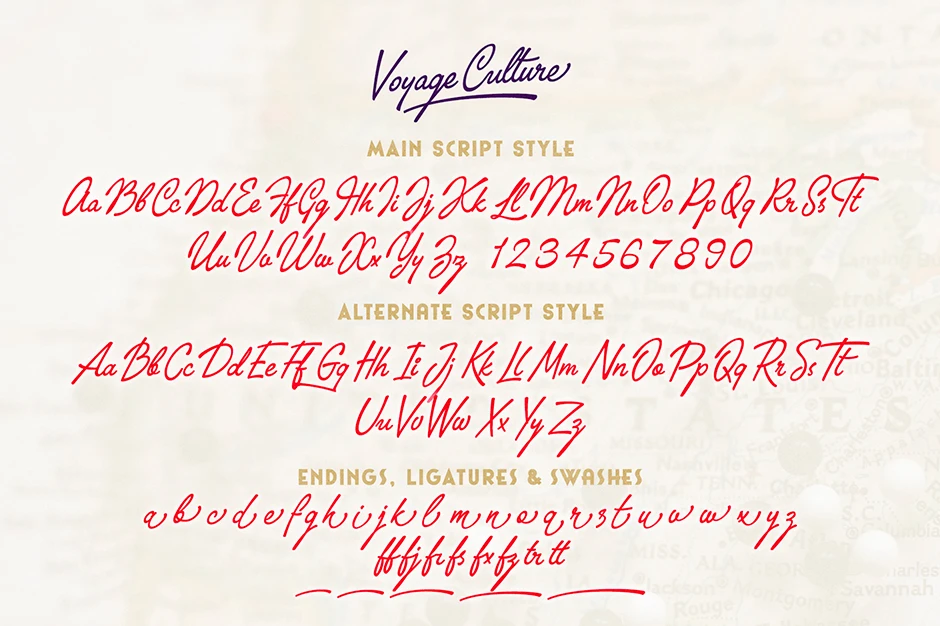 Voyage Culture
MAIN SCRIPT STYLE
Aa Bb Cc Dd Ee Ff Gg Hh Ii Jj Kk Ll Mm Nn Oo Pp Qq Rr Ss Tt
Uu Vv Ww Xx Yy Zz 1234567890
ALTERNATE SCRIPT STYLE
Aa Bb Cc Dd Ee Ff Gg Hh Ii Jj Kk Ll Mm Nn Oo Pp Qq Rr Ss Tt
Uu Vv Ww Xx Yy Zz
ENDINGS, LIGATURES & SWASHES
a b c d e f g h i j k l m n o q r s t u v w x y z
ff fj fr fs fx fz tr tt
ONTA
Chicago
Cleveland
Baltim
STATES
MISSOURI
Nashville
TENN.
S.C.
Columbia
MISS.
ALA.
GEO
Charles
Savannah
Jackson
Montgomery
Rouge